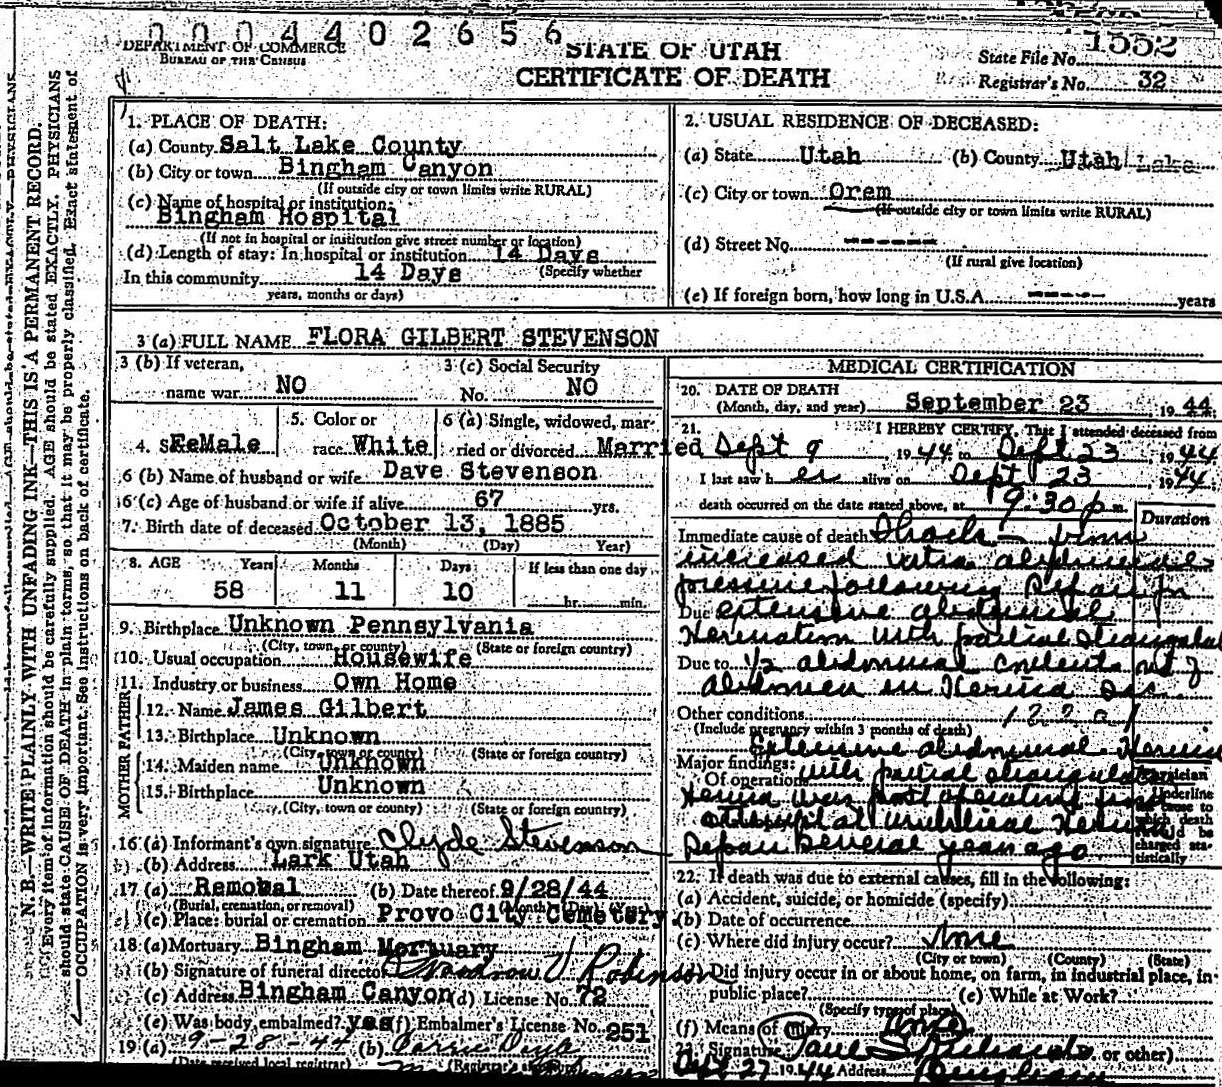 0 0 0 4 4 0 2 6 5 6
DEPARTMENT OF COMMERCE
BUREAU OF THE CENSUS
STATE OF UTAH
CERTIFICATE OF DEATH
State File No. 1552
Registrar's No. 32
N. B.—WRITE PLAINLY WITH UNFADING INK—THIS IS A PERMANENT RECORD.
Every item of information should be carefully supplied. AGE should be stated EXACTLY. PHYSICIANS
should state CAUSE OF DEATH in plain terms, so that it may be properly classified. Exact statement of
OCCUPATION is very important. See instructions on back of certificate.
1. PLACE OF DEATH:
(a) County Salt Lake County
(b) City or town Bingham Canyon
(If outside city or town limits write RURAL)
(c) Name of hospital or institution:
Bingham Hospital
(If not in hospital or institution give street number or location)
(d) Length of stay: In hospital or institution 14 Days
(Specify whether
In this community 14 Days
years, months or days)
2. USUAL RESIDENCE OF DECEASED:
(a) State Utah (b) County Utah Lake
(c) City or town Orem
(If outside city or town limits write RURAL)
(d) Street No. ------
(If rural give location)
(e) If foreign born, how long in U.S.A. ----- years
3 (a) FULL NAME FLORA GILBERT STEVENSON
3 (b) If veteran,
name war NO
3 (c) Social Security
No. NO
4. Sex FeMale
5. Color or
race White
6 (a) Single, widowed, mar-
ried or divorced Married
6 (b) Name of husband or wife Dave Stevenson
6 (c) Age of husband or wife if alive 67 yrs.
7. Birth date of deceased October 13, 1885
(Month) (Day) Year)
8. AGE Years Months Days If less than one day
58 11 10 hr. min.
9. Birthplace Unknown Pennsylvania
(City, town, or county) (State or foreign country)
10. Usual occupation Housewife
11. Industry or business Own Home
MOTHER FATHER
12. Name James Gilbert
13. Birthplace Unknown
(City, town or county) (State or foreign country)
14. Maiden name Unknown
15. Birthplace Unknown
(City, town or county) (State or foreign country)
16 (a) Informant's own signature Clyde Stevenson
(b) Address Lark Utah
17 (a) Removal (b) Date thereof 9/28/44
(Burial, cremation, or removal) (Month) (Day) (Year)
(c) Place: burial or cremation Provo City Cemetery.
18 (a) Mortuary Bingham Mortuary
(b) Signature of funeral director Woodrow Robinson
(c) Address Bingham Canyon (d) License No. 72
(e) Was body embalmed? yes (f) Embalmer's License No. 251
19 (a) 9-28-44 (b)
(Date received local registrar) (Registrar's signature)
MEDICAL CERTIFICATION
20. DATE OF DEATH
(Month, day, and year) September 23 1944
21. I HEREBY CERTIFY, That I attended deceased from
Sept 9, 1944 to Sept 23, 1944
I last saw her alive on Sept 23 1944
death occurred on the date stated above, at 9:30 p m.
Duration
Immediate cause of death Shock - from
increased intra abdominal
pressure following Repair for
Due extensive abdominal
Herniation with partial strangulat
Due to 1/2 abdominal contents out of
abdomen in Hernia sac
Other conditions
(Include pregnancy within 3 months of death)
Extensive abdominal Hernia
Major findings:
Of operation with partial strangulation
Hernia was post operative from
attempt at umbilical Hernia
Repair several years ago
Physician
Underline
cause to
which death
should be
charged sta-
tistically
22. If death was due to external causes, fill in the following:
(a) Accident, suicide, or homicide (specify)
(b) Date of occurrence
(c) Where did injury occur? None
(City or town) (County) (State)
Did injury occur in or about home, on farm, in industrial place, in
public place? (e) While at Work?
(Specify type of place)
(f) Means of injury None
23. Signature Paul S. Richards or other)
Sept 27 1944 Address Bingham